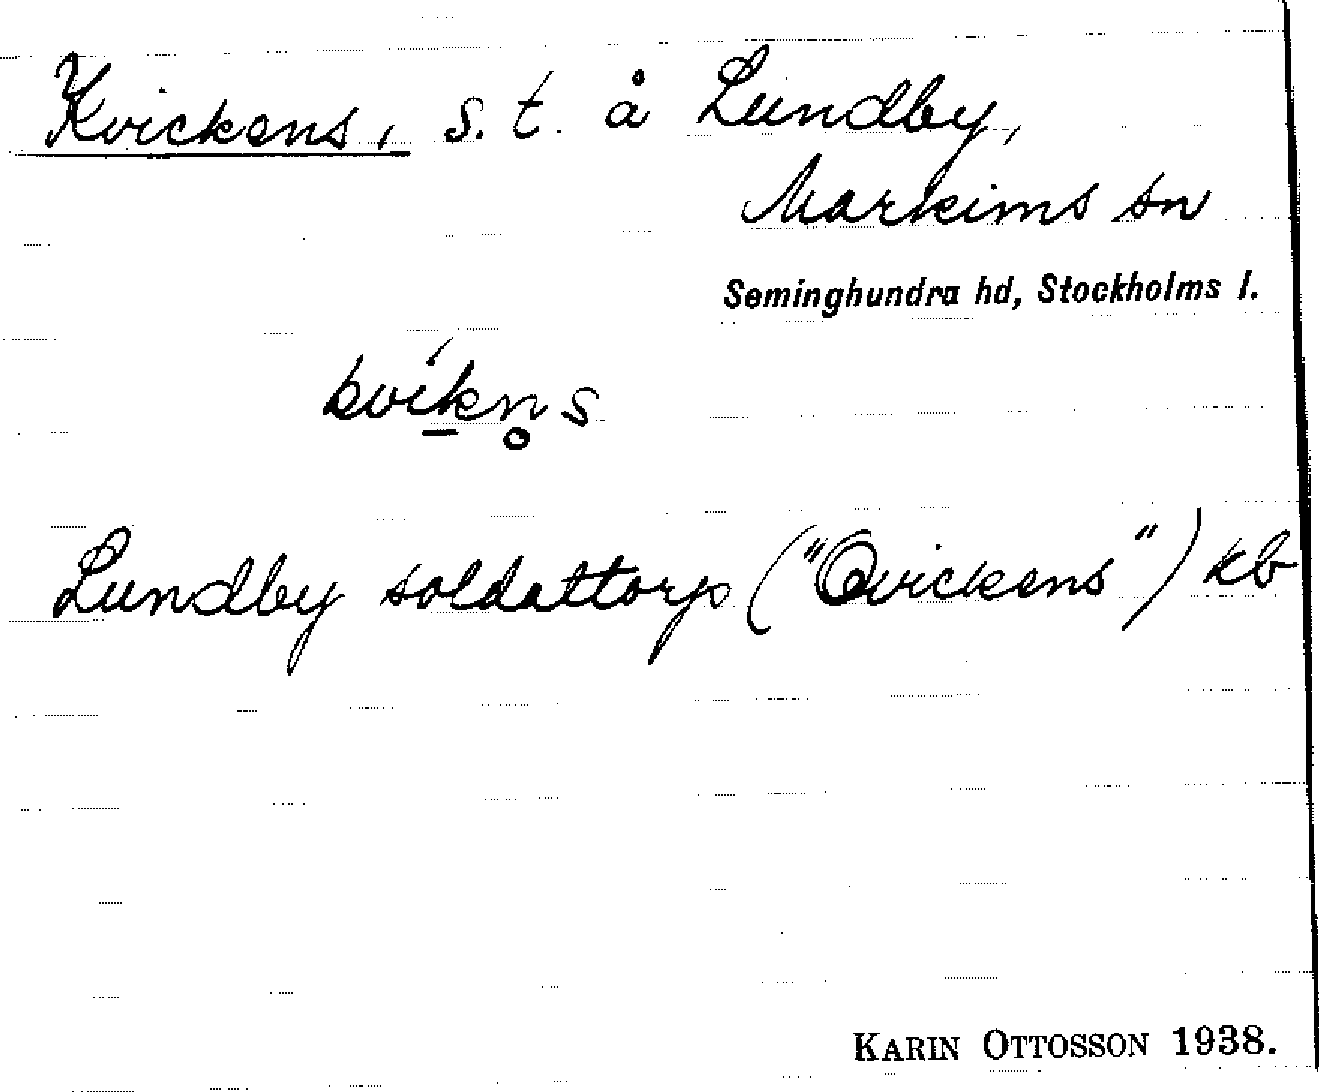 Kvickens, s. t. å Lundby,
Markims sn
Seminghundra hd, Stockholms l.
kvíkn̥s
Lundby soldattorp ("Qvickens") kb
KARIN OTTOSSON 1938.